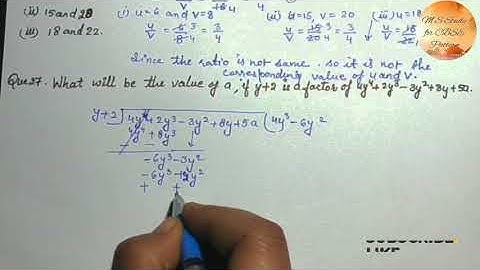 (ii) 15 and 20
(iii) 18 and 22.
(i) u=6 and v=8
u/v = 6/8 = 3/4
(ii) u=15, v=20
u/v = 15/20 = 3/4
(iii) u=18
u/v = 18/22
Since the ratio is not same. so it is not the
corresponding value of u and v.
Que 37. What will be the value of a, if y+2 is a factor of 4y⁴+2y³-3y²+8y+5a.
y+2 ) 4y⁴+2y³-3y²+8y+5a ( 4y³-6y²
4y⁴+8y³
- -
-6y³-3y²
-6y³-12y²
+ +
M.S Study
for CBSE
Pattern
SUBSCRIBE